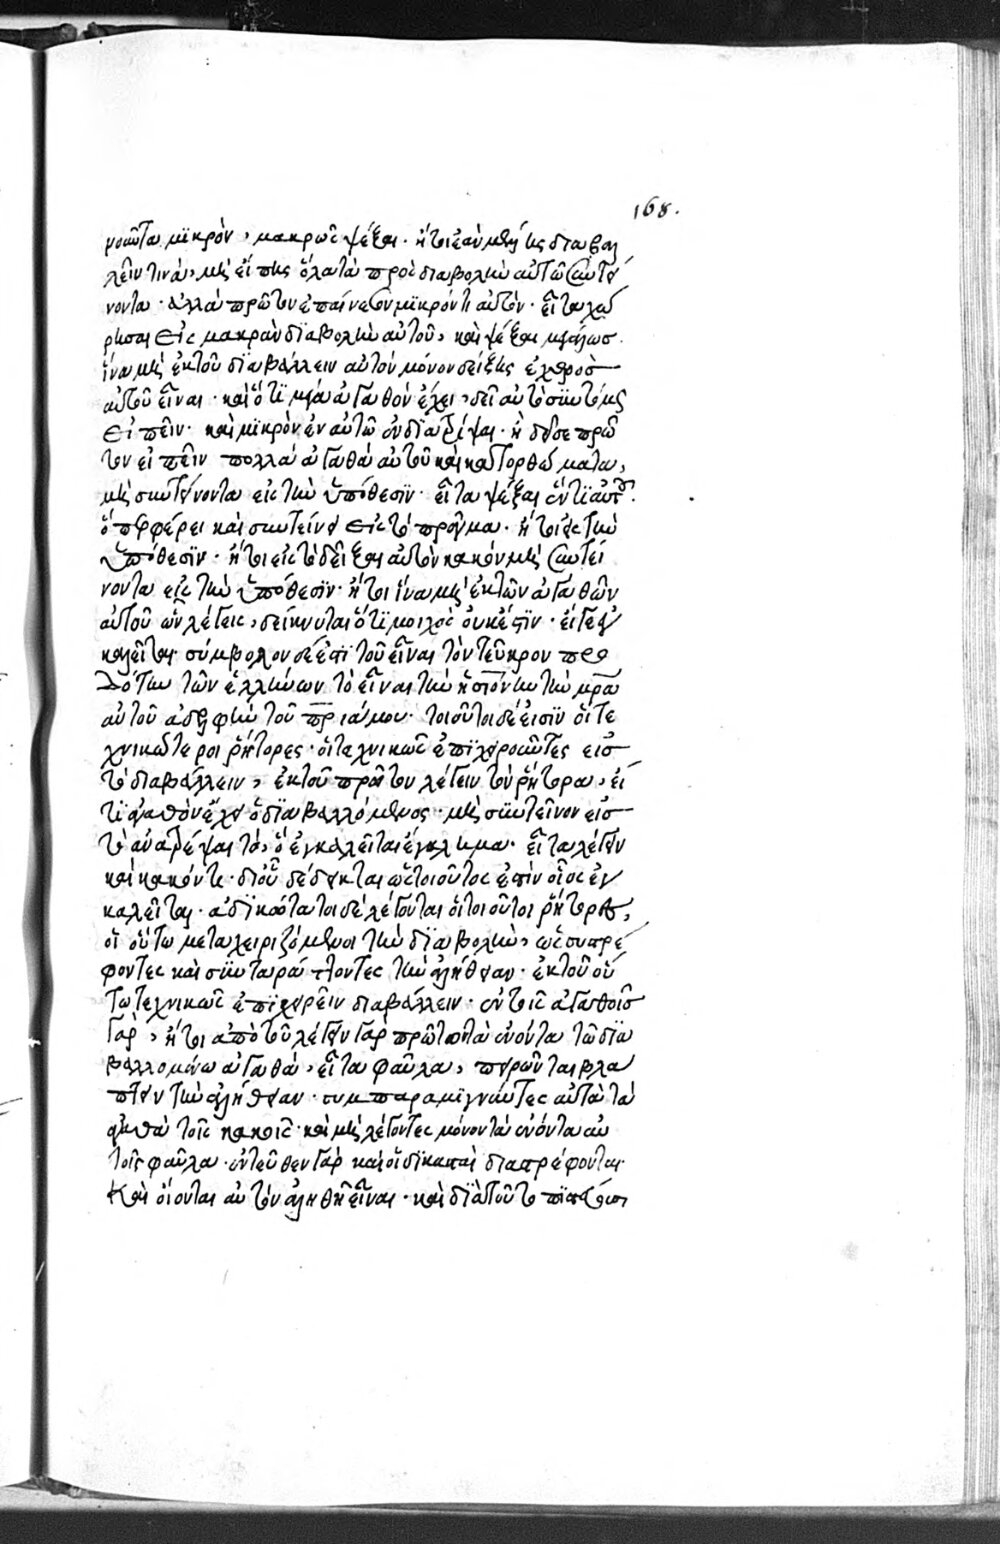 168.
νοῦντα μϊκρὸν, μακρῶς ψέξαι· ἤτοι ἐὰν μέλλῃς διαβαλ
λεῖν τινὰ, μὴ εἴπῃς ὅλα τὰ πρὸς διαβολὴν αὐτῶ συντεί
νοντα· ἀλλὰ πρῶτον ἐπαίνεσον μϊκρόν τι αὐτὸν· εἶτα χώ
ρησαι εἰς μακρὰν δϊαβολὴν αὐτοῦ, καὶ ψέξαι μεγάλως·
ἵνα μὴ ἐκ τοῦ δϊαβάλλειν αὐτὸν μόνον δείξῃς ἐχθρὸς
αὐτοῦ εἶναι· καὶ ὅτϊ μέγα ἀγαθὸν ἔχει, δεῖ αὐτὸ συντόμως
εἰπεῖν· καὶ μϊκρὸν ἐν αὐτῶ ἐνδϊατρίψαι· ἢ δεύσε πρῶ
τον εἰπεῖν πολλὰ ἀγαθὰ αὐτοῦ καὶ κατορθώματα,
μὴ συντείνοντα εἰς τὴν ὑπόθεσϊν· εἶτα ψέξαι ἕν τϊ αὐτοῦ·
ὅπερ φέρει καὶ συντείνει εἰς τὸ πρᾶγμα· ἤτοι εἰς τὴν
ὑπόθεσϊν· ἤτοι εἰς τὸ δεῖξαι αὐτὸν κακόν μὴ συντεί
νοντα εἰς τὴν ὑπόθεσϊν· ἤτοι ἵνα μὴ ἐκ τῶν ἀγαθῶν
αὐτοῦ ὧν λέγεις, δείκνυται ὅτϊ μοιχὸς οὐκ ἔστϊν· εἴ γε ἐγ
καλεῖται· σύμβολον δέ ἐστϊ τοῦ εἶναι τὸν τεῦκρον προ
δότην τῶν ἑλλήνων τὸ εἶναι τὴν ἡσιόνην τὴν μρα
αὐτοῦ ἀδελφὴν τοῦ πριάμου· τοιοῦτοι δέ εἰσϊν οἵ τε
χνικώτεροι ῥήτορες· οἳ τεχνικῶς ἐπϊχειροῦντες εἰς
τὸ διαβάλλειν, ἐκ τοῦ πρῶτον λέγειν τὸν ῥήτορα, εἴ
τϊ ἀγαθὸν ἔχει ὁ δϊαβαλλόμενος· μὴ συντεῖνον εἰς
τὸ ἀνατρέψαι τὸ, ὃ ἐγκαλεῖται ἔγκλημα· εἶτα λέγειν
καὶ κακόν τι· δι' οὗ δέδεικται ὡς τοιοῦτος ἐστὶν οἷος ἐγ
καλεῖται· ἀδϊκώτατοι δὲ λέγονται οἱ τοιοῦτοι ῥήτορες,
οἱ οὕτω μεταχειριζόμενοι τὴν δϊαβολὴν, ὡς συστρέ
φοντες καὶ συνταράττοντες τὴν ἀλήθειαν· ἐκ τοῦ οὕ
τω τεχνικῶς ἐπϊχειρεῖν διαβάλλειν· ἐν τοῖς ἀγαθοῖς
γὰρ, ἤτοι ἀπὸ τοῦ λέγειν γὰρ πρῶτον τὰ ἐνόντα τῶ δϊα
βαλλομένω ἀγαθὰ, εἶτα φαῦλα, πειρῶνται βλα
πτειν τὴν ἀλήθειαν· συμπαραμϊγνύντες αὐτὰ τὰ
ἀγαθὰ τοῖς κακοῖς· καὶ μὴ λέγοντες μόνον τὰ ἐνόντα αυ
τοῖς φαῦλα· ἐντεῦθεν γὰρ καὶ οἱ δικασταὶ διαστρέφονται·
καὶ οἴονται αὐτὸν ἀληθῆ εἶναι· καὶ δϊὰ τοῦτο